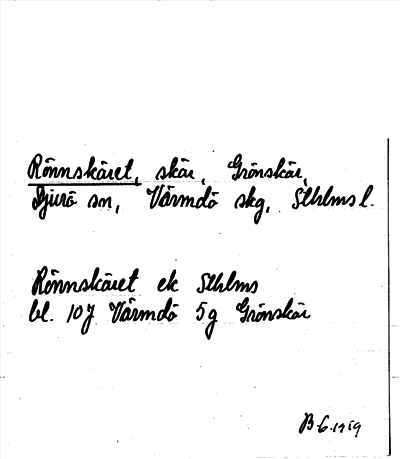 Rönnskäret, skär, Grönskär,
Djurö sn, Värmdö skg, Sthlms l.
Rönnskäret ek Sthlms
bl. 107 Värmdö 5g Grönskär